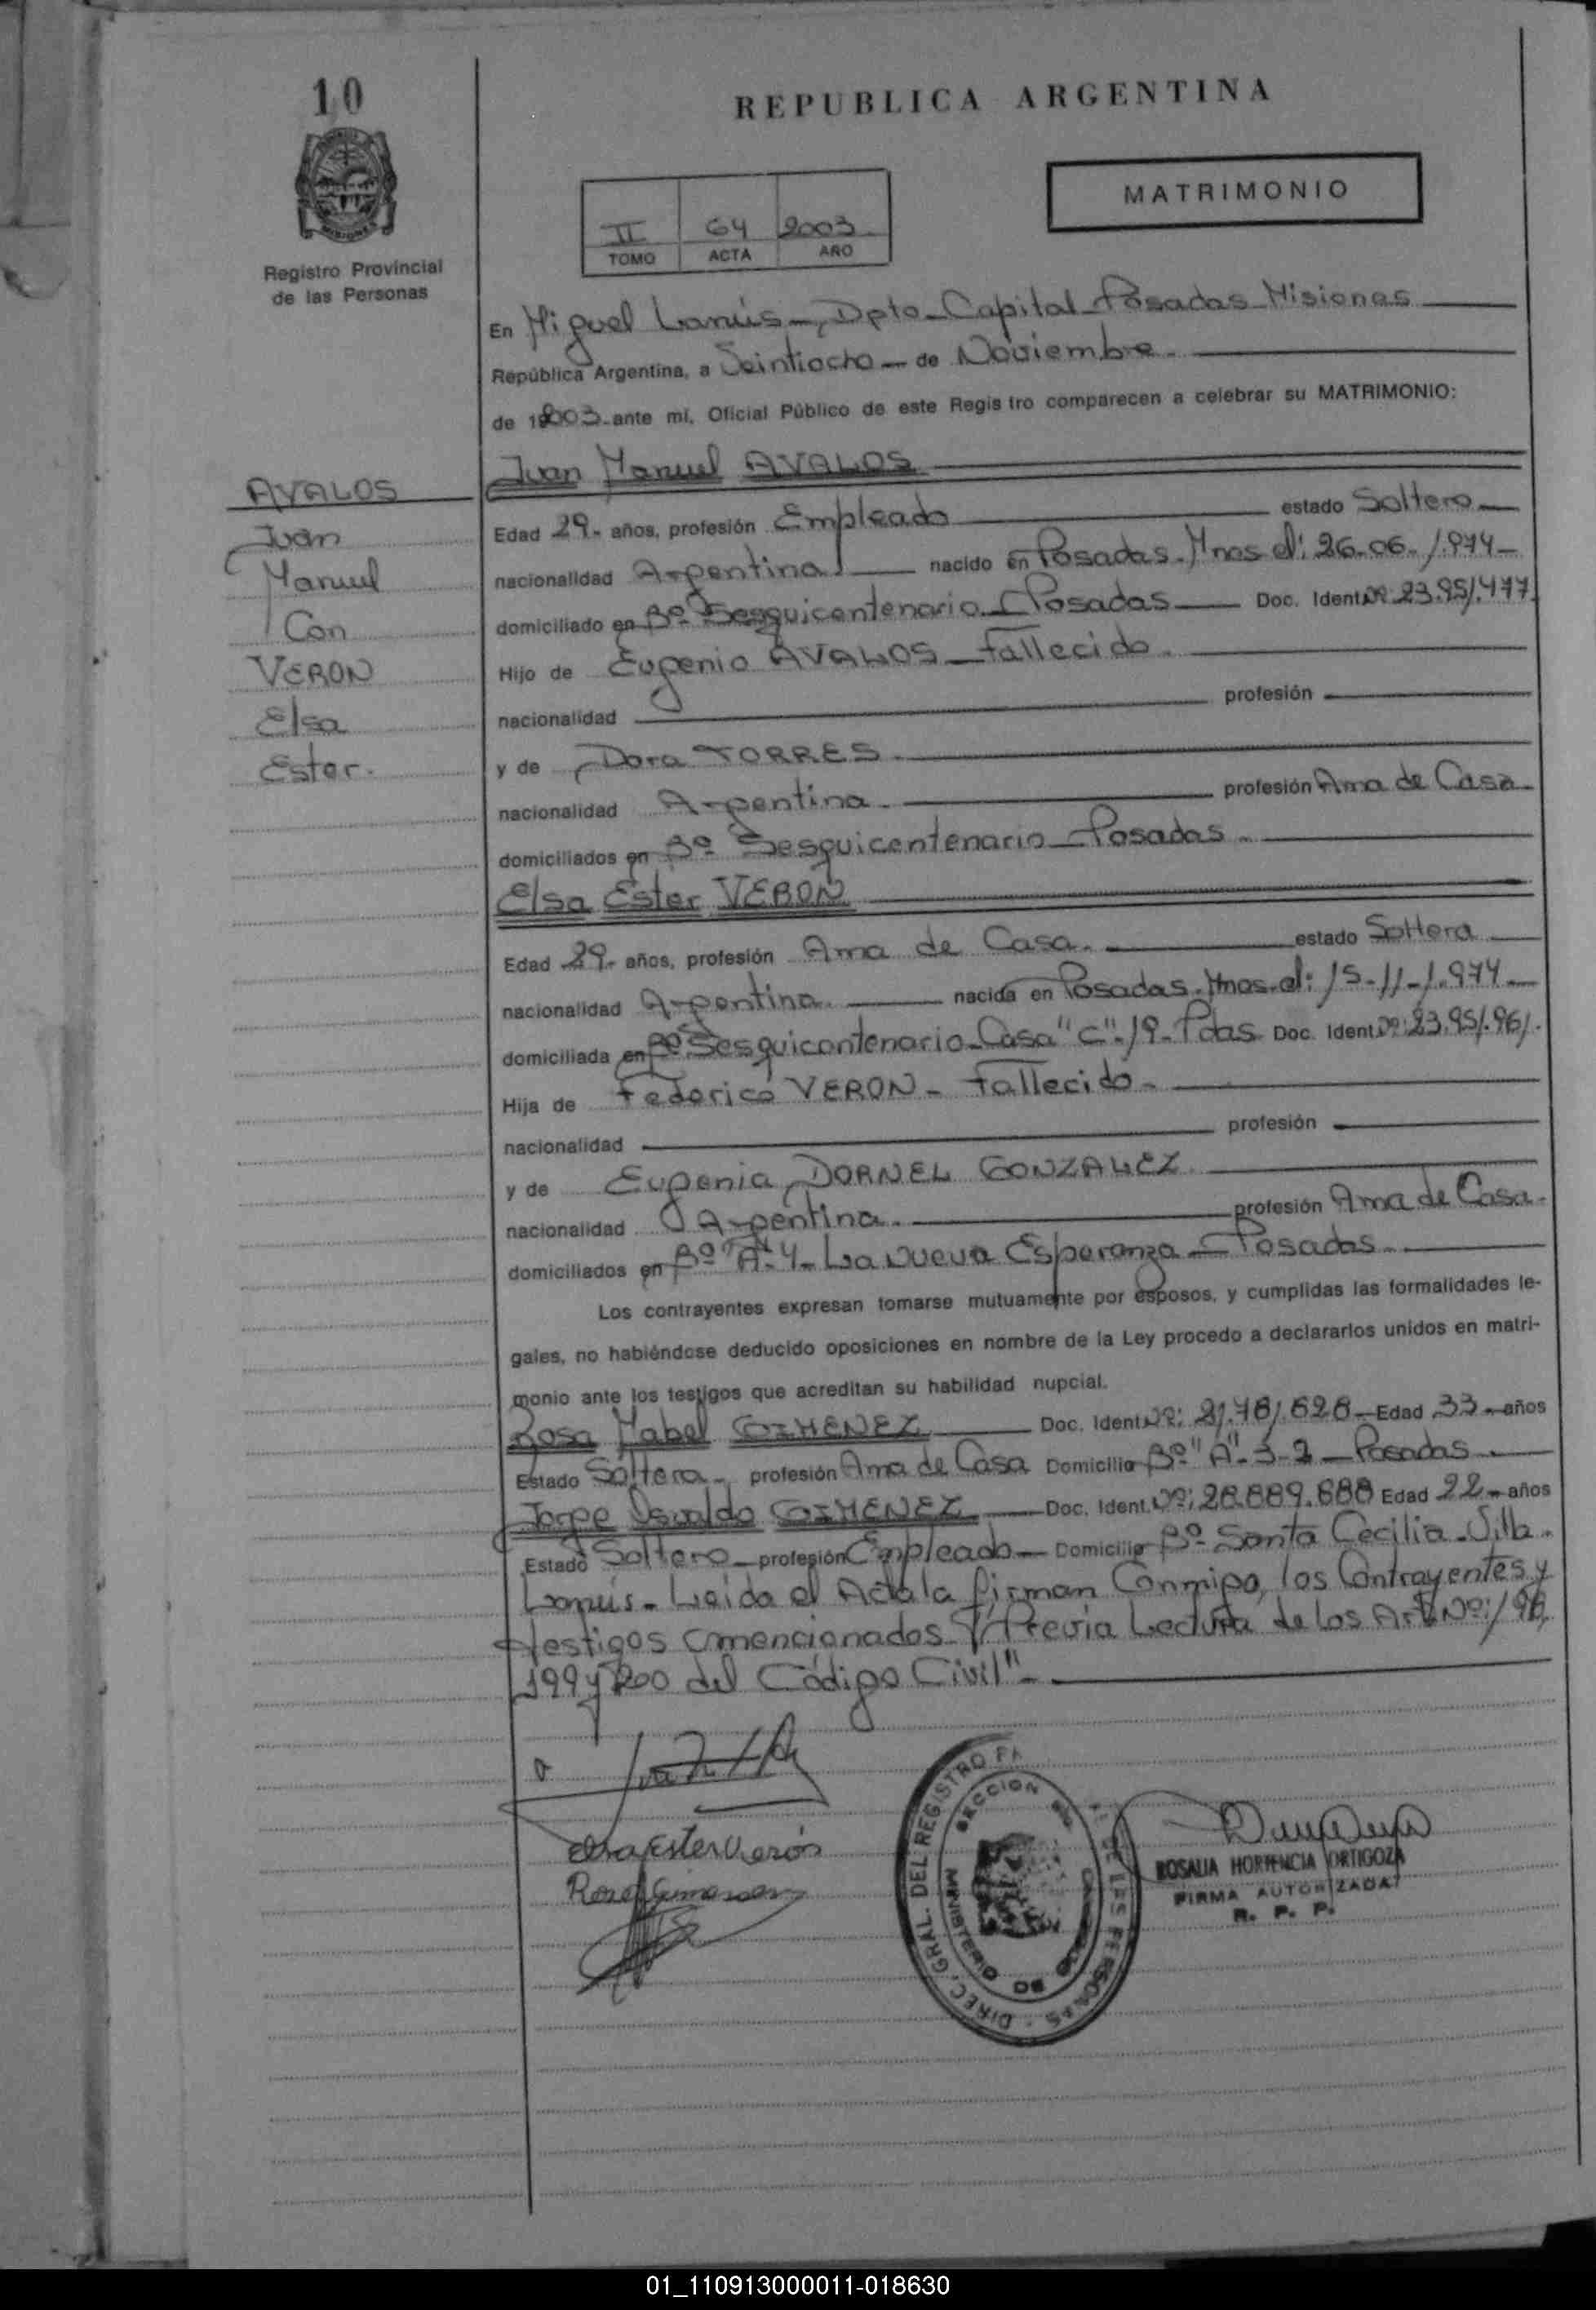 10
REPUBLICA ARGENTINA
MATRIMONIO
II 64 2003
TOMO ACTA AÑO
Registro Provincial
de las Personas
En Miguel Lanús-, Dpto- Capital- Posadas- Misiones
República Argentina, a Veintiocho- de Noviembre-
de 2003- ante mi, Oficial Público de este Registro comparecen a celebrar su MATRIMONIO:
AVALOS
Juan
Manuel
Con
VERON
Elsa
Ester.
Juan Manuel AVALOS
Edad 29- años, profesión Empleado estado Soltero
nacionalidad Argentina nacido en Posadas- Mnes el: 26-06-1.974-
domiciliado en Bº Sesquicentenario- Posadas Doc. Ident. Nº: 23.951.477.
Hijo de Eugenio AVALOS- Fallecido-
nacionalidad profesión
y de Dora TORRES-
nacionalidad Argentina- profesión Ama de Casa-
domiciliados en Bº Sesquicentenario- Posadas-
Elsa Ester VERON
Edad 29- años, profesión Ama de Casa- estado Soltera
nacionalidad Argentina- nacida en Posadas- Mnes- el: 15-11-1.974-
domiciliada en Bº Sesquicentenario- Casa "C"-19- Pdas Doc. Ident. Nº: 23.951.961.
Hija de Federico VERON- Fallecido-
nacionalidad profesión
y de Eugenia DORNEL GONZALEZ-
nacionalidad Argentina- profesión Ama de Casa-
domiciliados en Bº "A"-4- La Nueva Esperanza- Posadas-
Los contrayentes expresan tomarse mutuamente por esposos, y cumplidas las formalidades le-
gales, no habiéndose deducido oposiciones en nombre de la Ley procedo a declararlos unidos en matri-
monio ante los testigos que acreditan su habilidad nupcial.
Rosa Mabel GIMENEZ Doc. Ident. Nº: 21.781.628- Edad 33- años
Estado Soltera- profesión Ama de Casa Domicilio Bº "A"-3-2- Posadas-
Jorge Osvaldo GIMENEZ Doc. Ident. Nº: 28.889.888 Edad 22- años
Estado Soltero- profesión Empleado- Domicilio Bº Santa Cecilia- Villa-
Lanús- Leida el Acta la firman Conmigo, los Contrayentes y
testigos mencionados- "Previa Lectura de los Art. Nº: 198,
199 y 200 del Código Civil"-
Elsa Ester Verón
DIREC. GRAL. DEL REGISTRO DE LAS PERSONAS
SECCION
MINISTERIO DE
ROSALIA HORTENCIA ORTIGOZA
FIRMA AUTORIZADA
R. P. P.
01_110913000011-018630